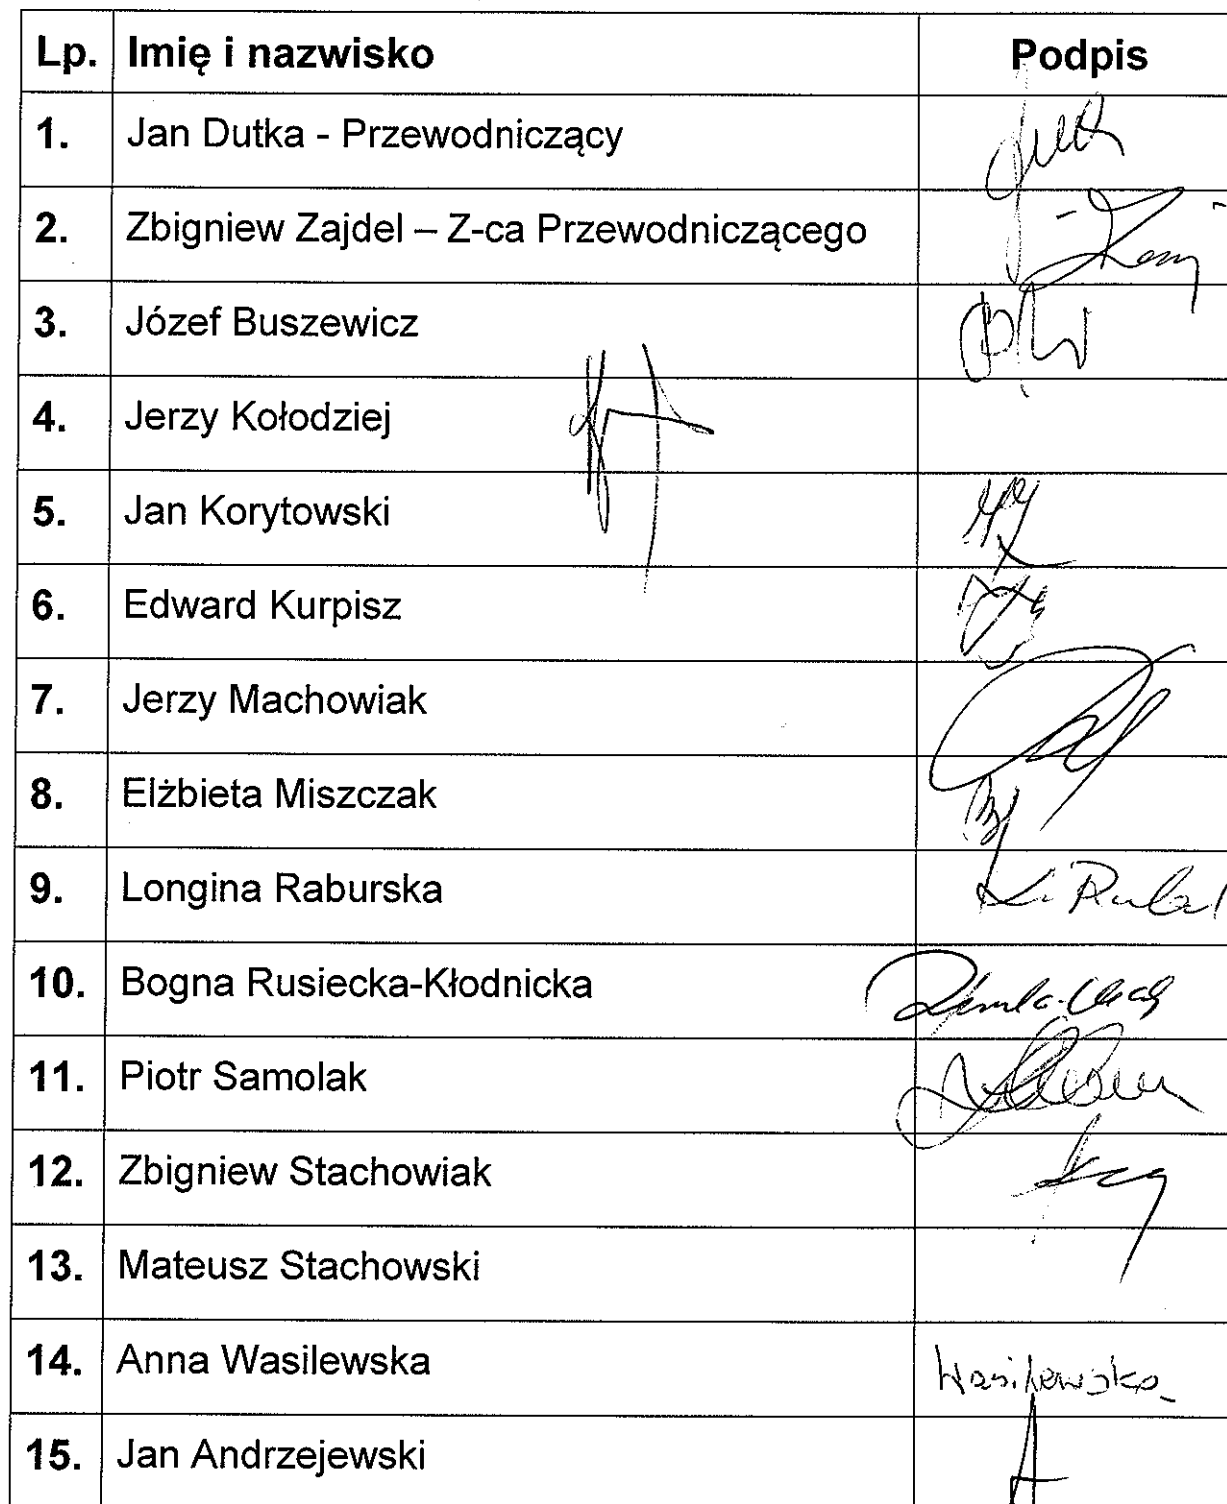 Lp. Imię i nazwisko Podpis
1. Jan Dutka - Przewodniczący
2. Zbigniew Zajdel – Z-ca Przewodniczącego
3. Józef Buszewicz
4. Jerzy Kołodziej
5. Jan Korytowski
6. Edward Kurpisz
7. Jerzy Machowiak
8. Elżbieta Miszczak
9. Longina Raburska
10. Bogna Rusiecka-Kłodnicka
11. Piotr Samolak
12. Zbigniew Stachowiak
13. Mateusz Stachowski
14. Anna Wasilewska Wasilewska
15. Jan Andrzejewski